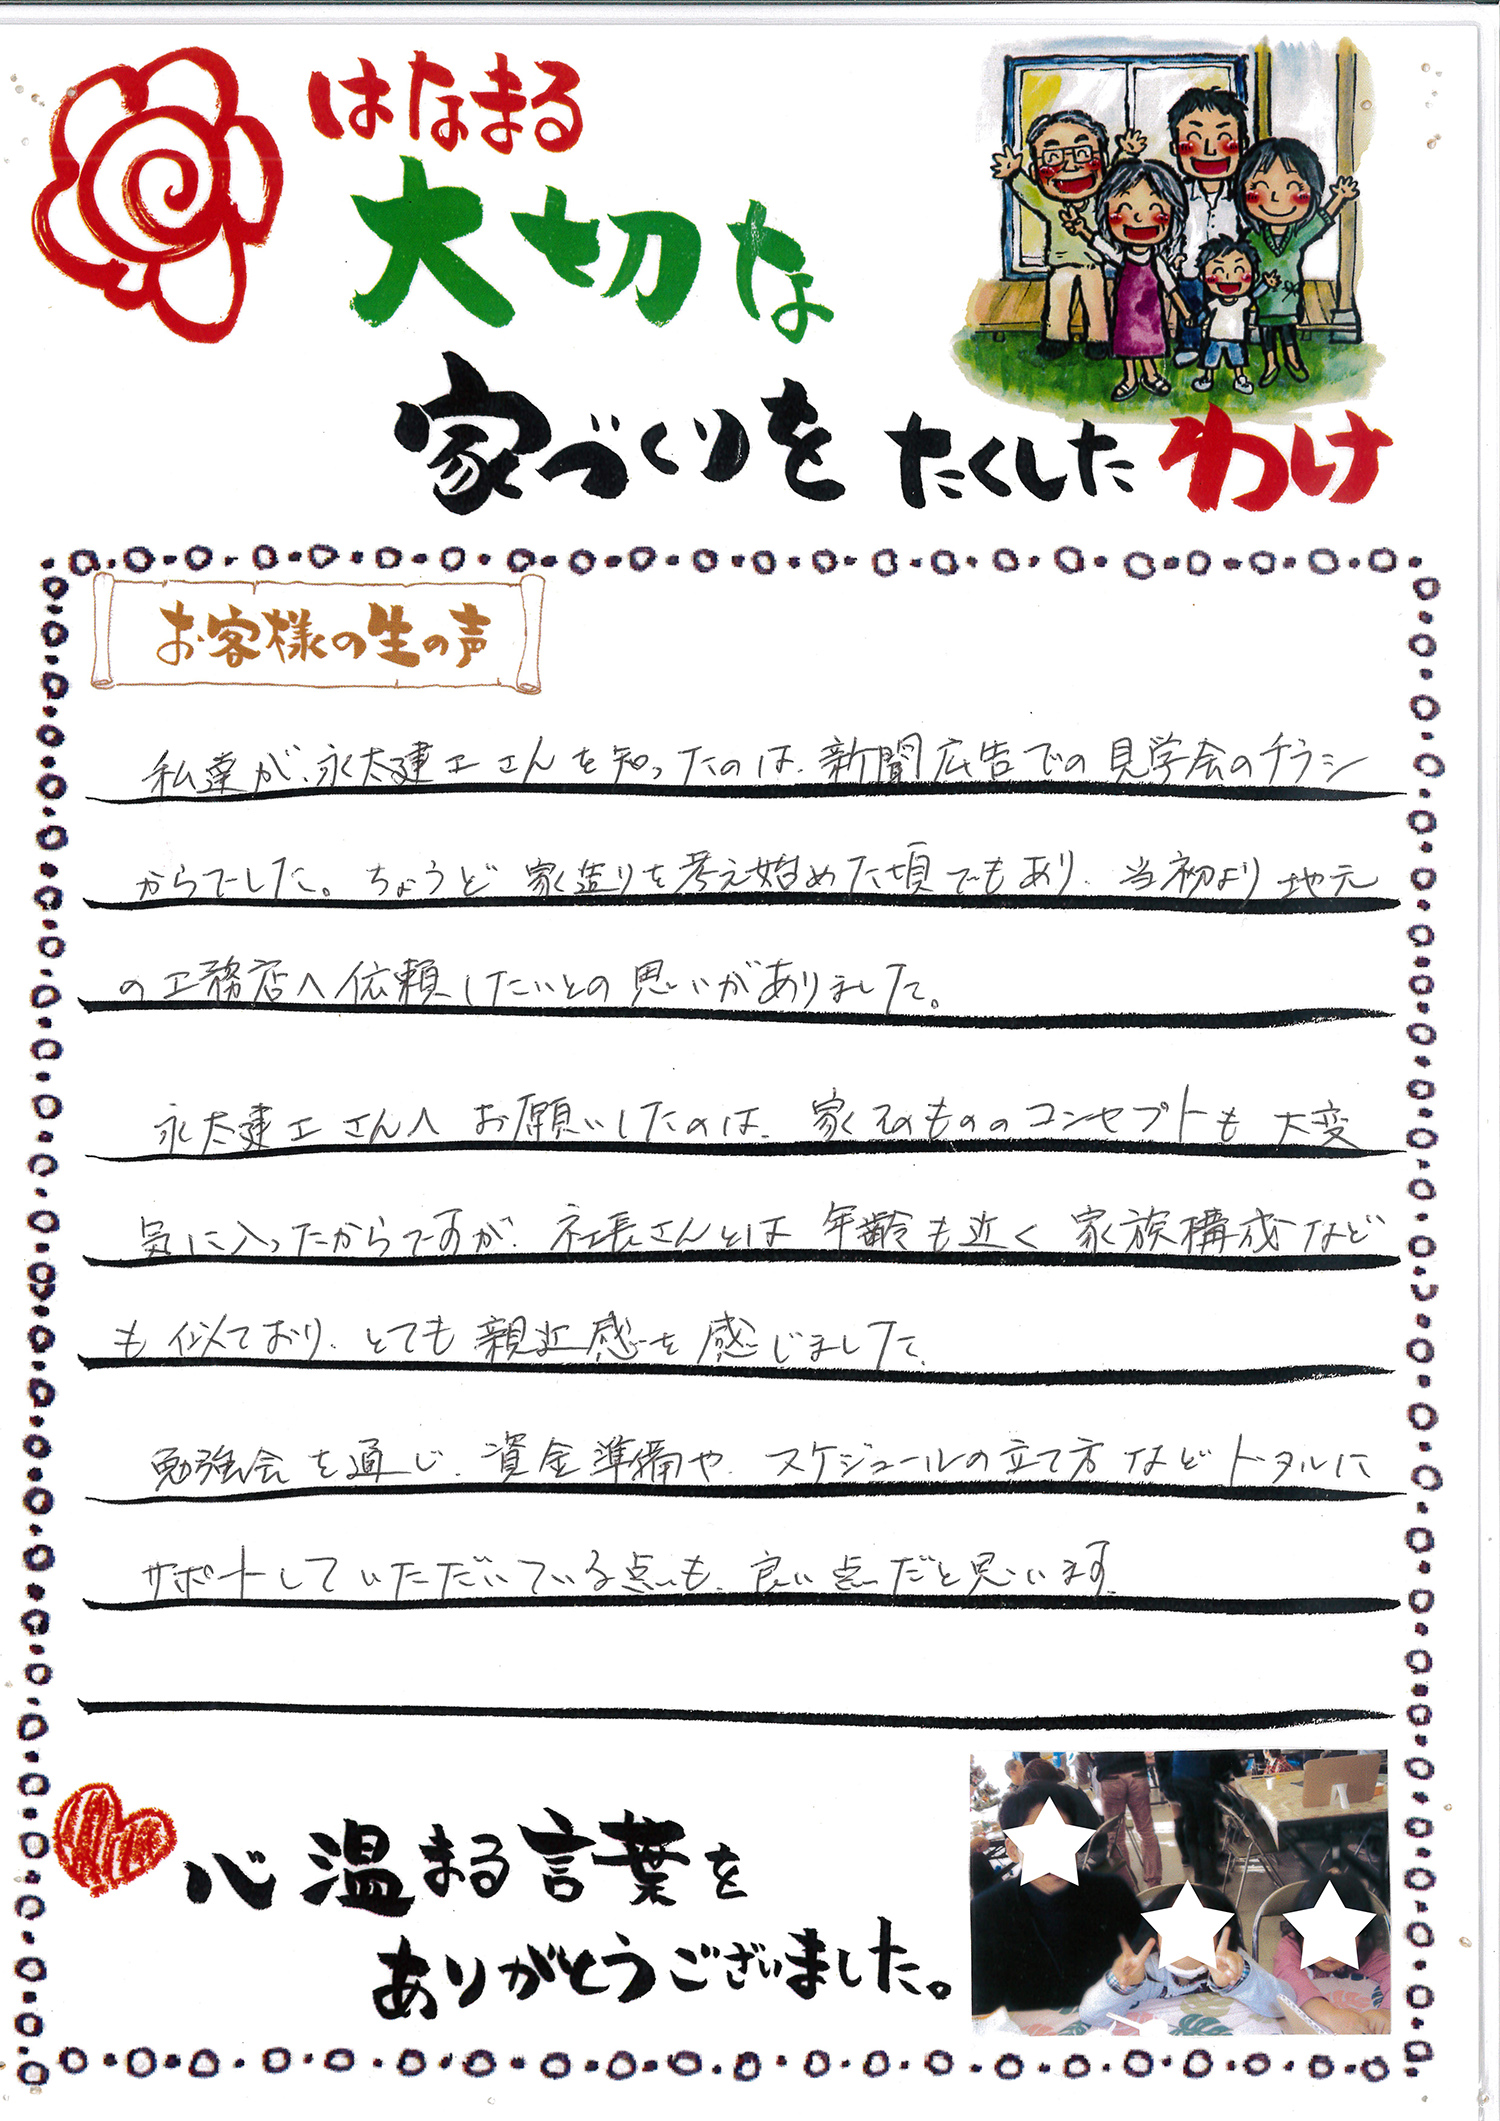 はなまる
大切な
家づくりをたくしたわけ
お客様の生の声
私達が、永太建工さんを知ったのは、新聞広告での見学会のチラシ
からでした。ちょうど家造りを考え始めた頃でもあり、当初より地元
の工務店へ依頼したいとの思いがありました。
永太建工さんへお願いしたのは、家そのもののコンセプトも大変
気に入ったからですが、社長さんとは年齢も近く家族構成など
も似ており、とても親近感を感じました。
勉強会を通じ、資金準備や、スケジュールの立て方などトータルに
サポートしていただいている点も、良い点だと思います。
心温まる言葉を
ありがとうございました。